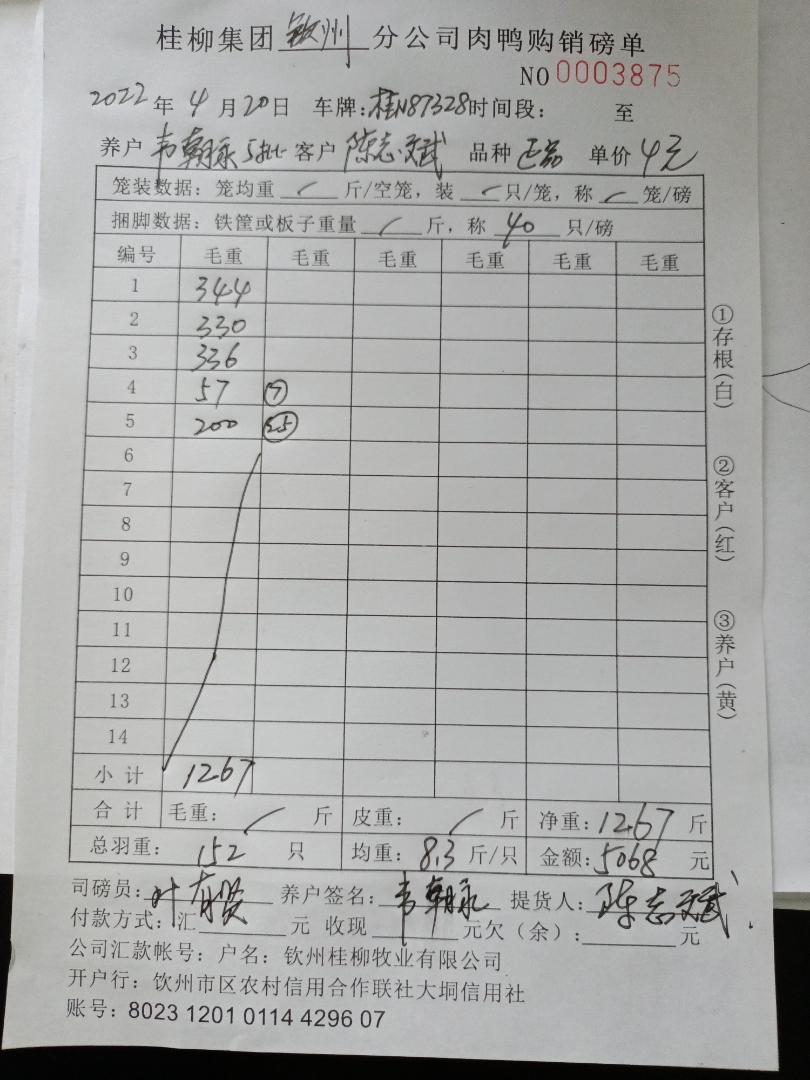 桂柳集团 钦州 分公司肉鸭购销磅单
NO 0003875
2022 年 4 月 20 日 车牌:桂N87328 时间段: 至
养户 韦朝永 5批 客户 陈志斌 品种 正品 单价 4元
笼装数据: 笼均重 / 斤/空笼, 装 / 只/笼, 称 / 笼/磅
捆脚数据: 铁筐或板子重量 / 斤, 称 40 只/磅
编号 毛重 毛重 毛重 毛重 毛重 毛重
1 344
2 330
3 336
4 57 ⑦
5 200 ㉕
6
7
8
9
10
11
12
13
14
小计 1267
合计 毛重: / 斤 皮重: / 斤 净重: 1267 斤
总羽重: 152 只 均重: 8.3 斤/只 金额: 5068 元
司磅员: 叶有贤 养户签名: 韦朝永 提货人: 陈志斌
付款方式: 汇 元 收现 元欠(余): 元
公司汇款帐号: 户名: 钦州桂柳牧业有限公司
开户行: 钦州市区农村信用合作联社大垌信用社
账号: 8023 1201 0114 4296 07
①存根(白)
②客户(红)
③养户(黄)